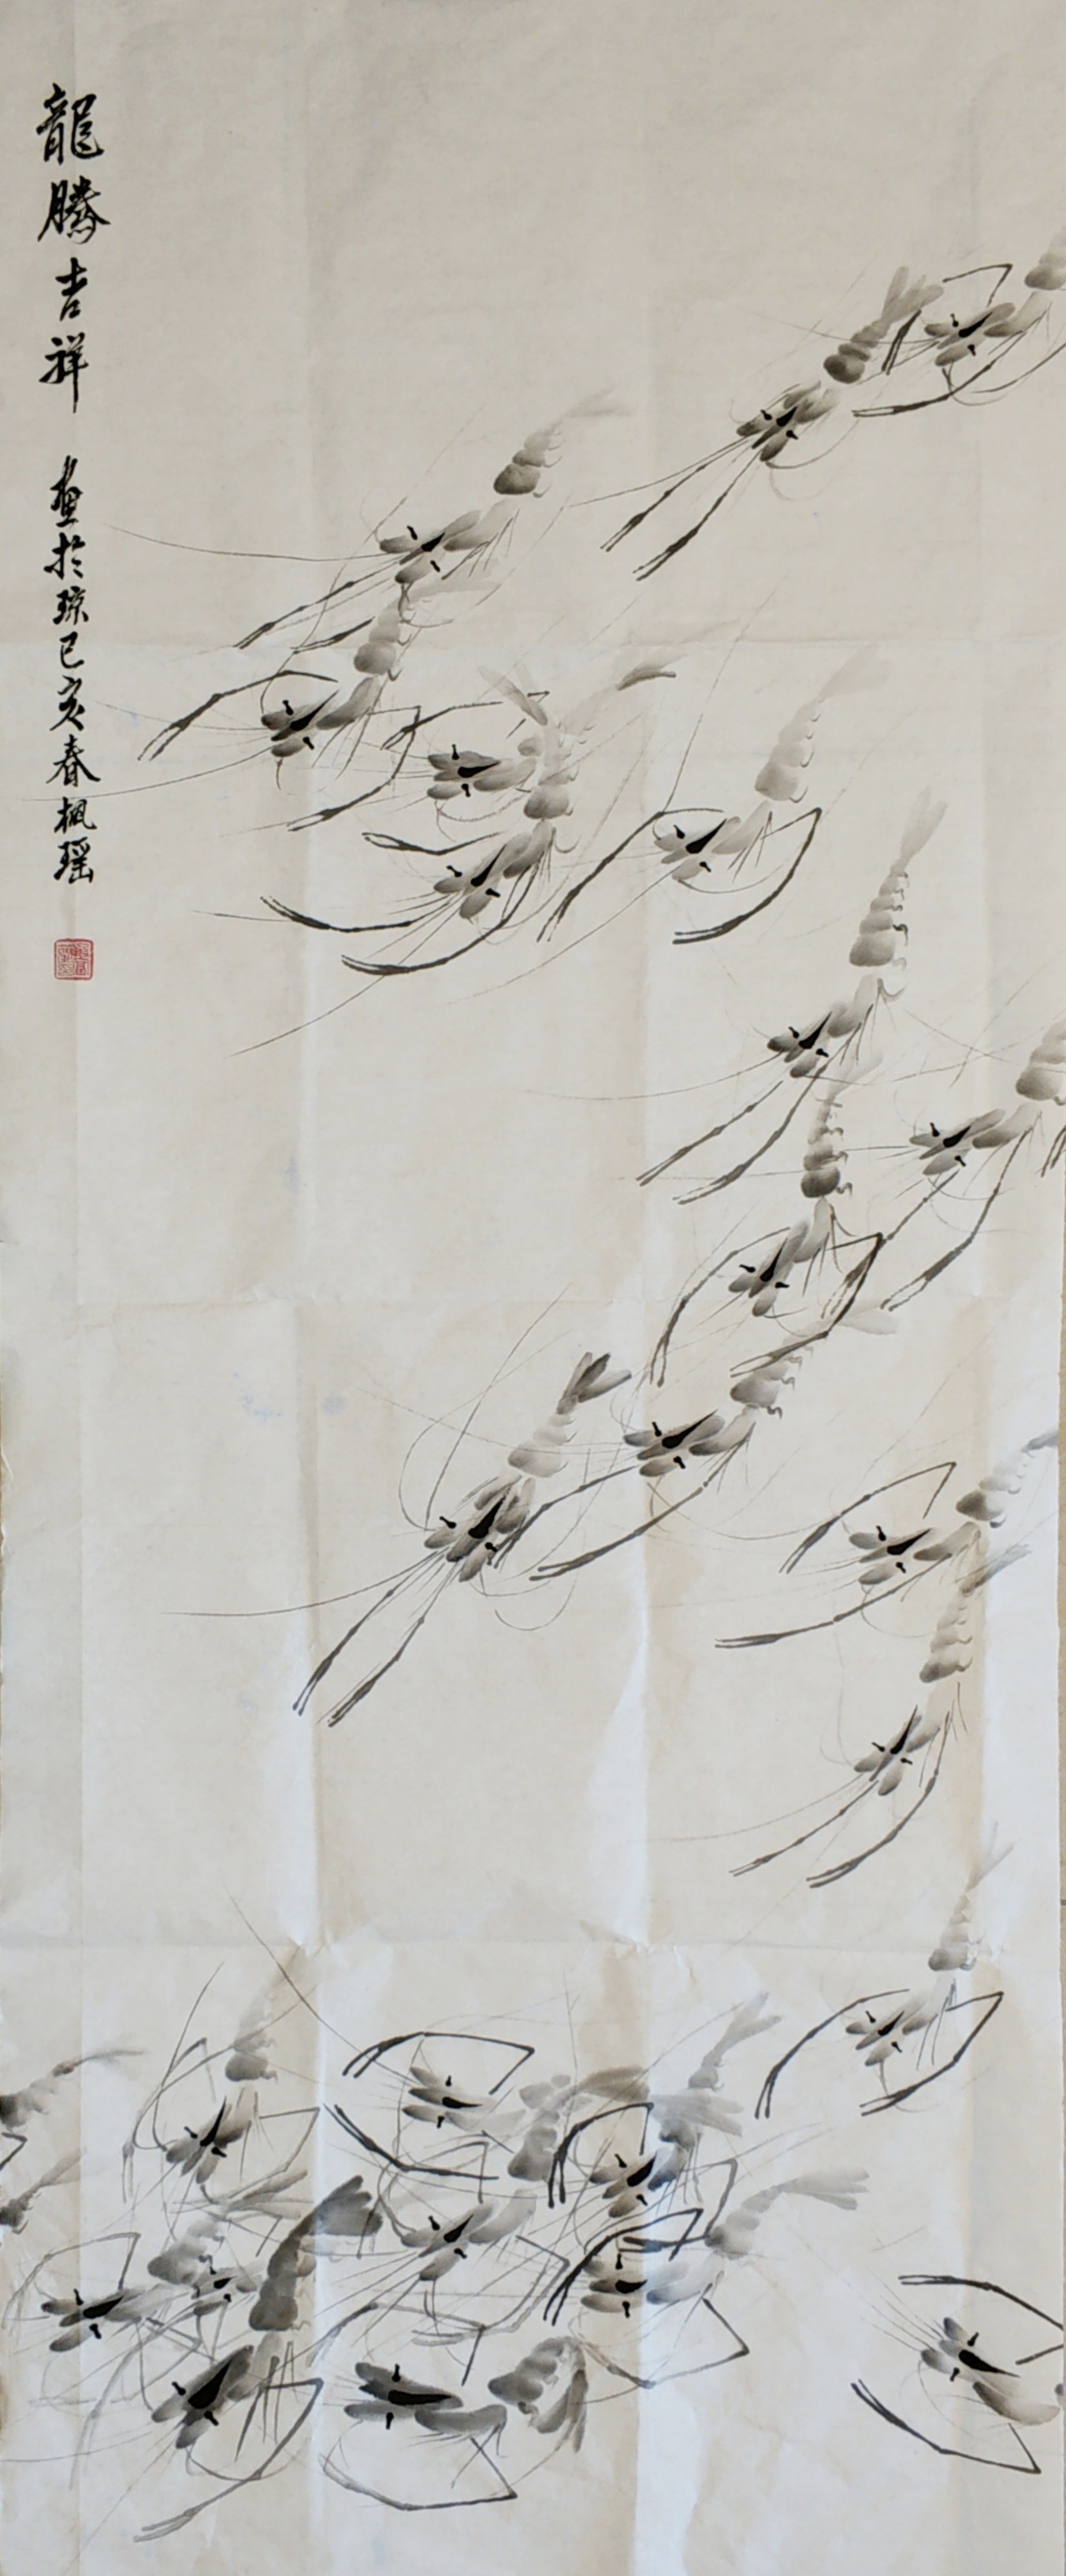 龍騰吉祥 畫於琼己亥春楓瑶